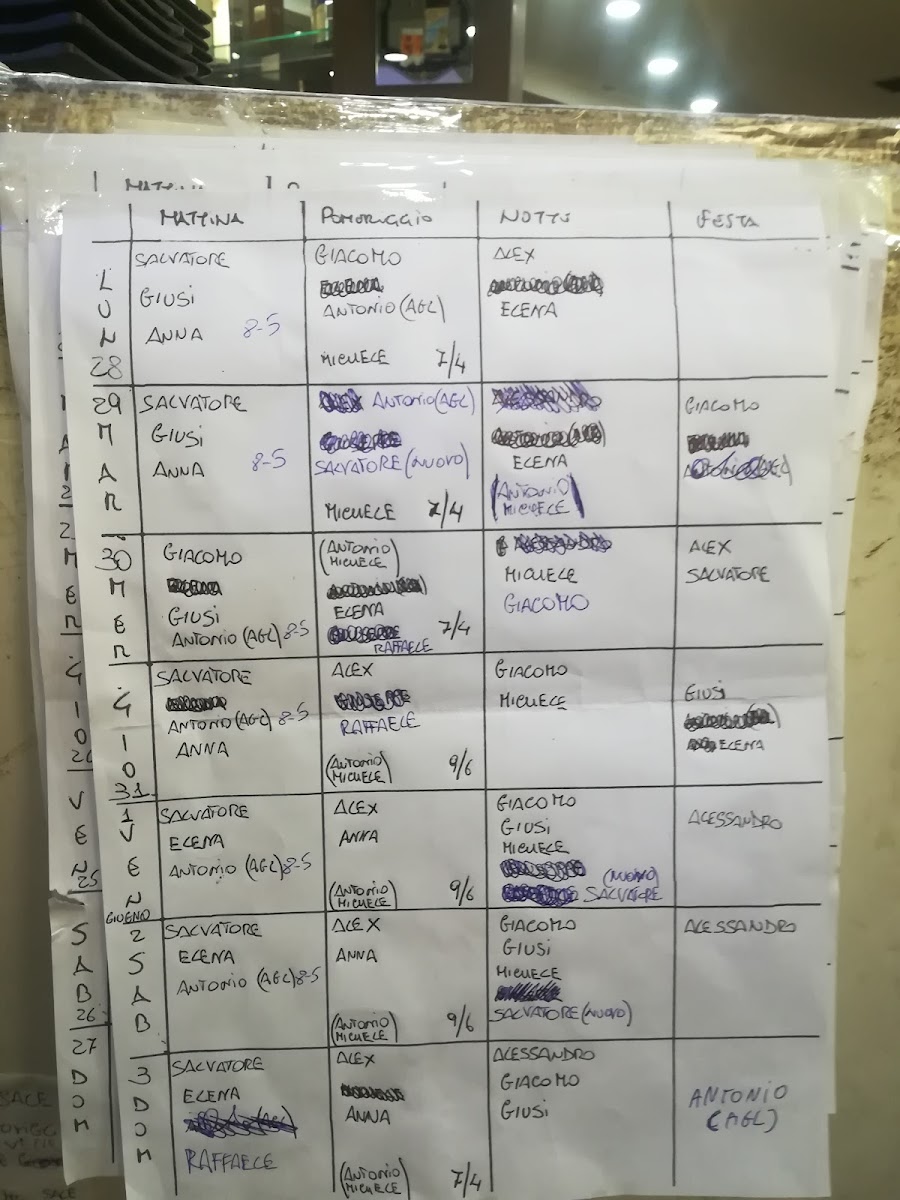 MATTINA POMERIGGIO NOTTE FESTA
LUN 28
SALVATORE
GIUSI
ANNA 8-5
GIACOMO
ANTONIO (AGL)
MICHELE 7/4
ALEX
ELENA
29 MAR
SALVATORE
GIUSI
ANNA 8-5
ANTONIO (AGL)
SALVATORE (NUOVO)
MICHELE 7/4
ELENA
(ANTONIO
MICHELE)
GIACOMO
30 MER
GIACOMO
GIUSI
ANTONIO (AGL) 8-5
(ANTONIO
MICHELE)
ELENA
7/4
RAFFAELE
MICHELE
GIACOMO
ALEX
SALVATORE
GIO 31
SALVATORE
ANTONIO (AGL) 8-5
ANNA
ALEX
RAFFAELE
(ANTONIO
MICHELE) 9/6
GIACOMO
MICHELE
GIUSI
ELENA
1 VEN
GIUGNO
SALVATORE
ELENA
ANTONIO (AGL) 8-5
ALEX
ANNA
(ANTONIO
MICHELE) 9/6
GIACOMO
GIUSI
MICHELE
(NUOVO)
SALVATORE
ALESSANDRO
2 SAB
SALVATORE
ELENA
ANTONIO (AGL) 8-5
ALEX
ANNA
(ANTONIO
MICHELE) 9/6
GIACOMO
GIUSI
MICHELE
SALVATORE (NUOVO)
ALESSANDRO
3 DOM
SALVATORE
ELENA
RAFFAELE
ALEX
ANNA
(ANTONIO
MICHELE) 7/4
ALESSANDRO
GIACOMO
GIUSI
ANTONIO
(AGL)
MER
GIO
VEN
25
SAB
26
27
DOM
SACE